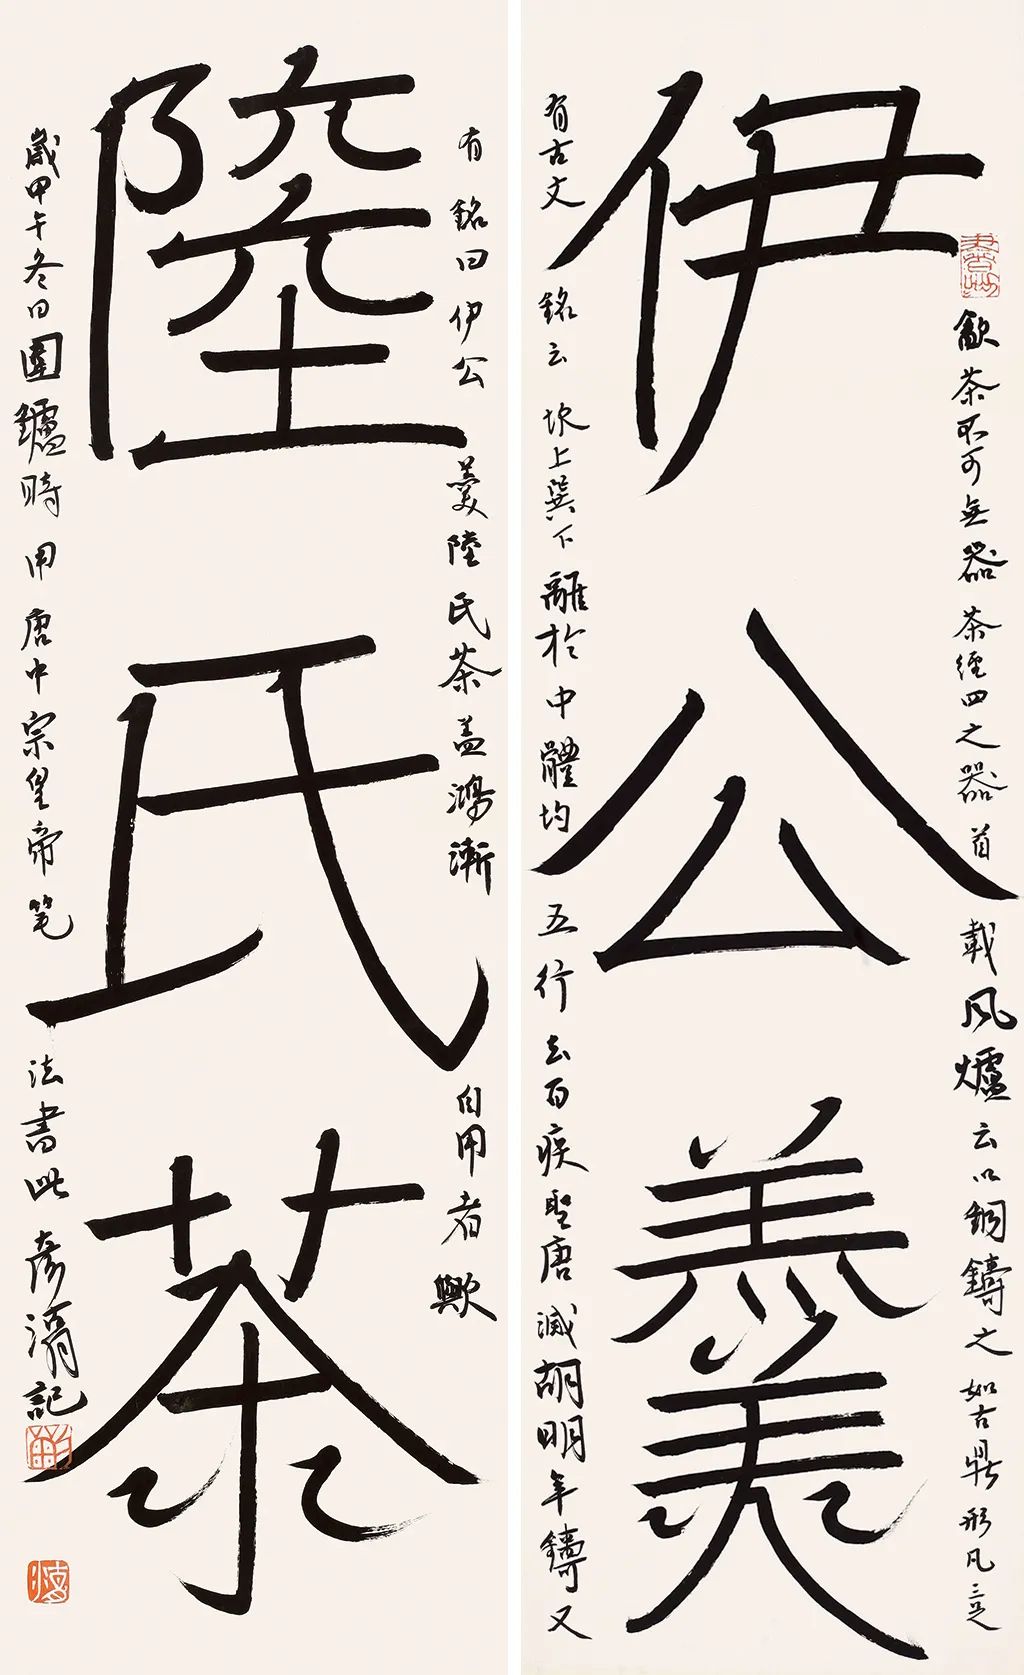 伊公羹
㱃茶不可無器茶經四之器首載风爐云以銅鑄之如古鼎形凡三足
有古文銘云坎上巽下離於中體均五行去百疾聖唐滅胡明年鑄又
陸氏茶
有銘曰伊公羹陸氏茶盖鴻漸自用者歟
歲甲午冬日圍鑪時用唐中宗皇帝笔法書此彥記